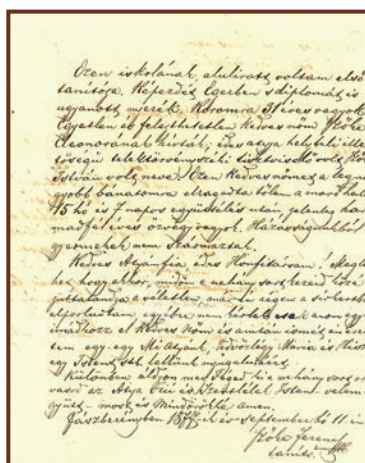 Ezen iskolának, alulirott voltam első
tanitója. Képezdés Egerben s diplomát is
ugyanott nyerék. Koromra 31 éves vagyok
Egyetlen és felejthetetlen kedves nőm Kőhe
Eleonorának hivták; édes atyja helybeli ille-
tőségű telektörvényszéki tisztviselő volt
István volt neve. Ezen kedves nőmet a legna-
gyobb bánatomra elragadta tőlem a mord halál
15 hó és 7 napos együttélés után, jelenleg har-
madfél éves özvegy vagyok. Házasságunkból
gyermekek nem származtak.
Kedves Atyámfia édes Honfitársam! Megle-
het hogy akkor, midőn e néhány sort kezeid közé
juttatandja a véletlen, már én régen a sirkertben
elporludtam egyébre nem kérlek csak azon egy
imádkozz el kedves Nőm és azután ismét én
tem egy-egy Mi Atyánk, Üdvözlégy Mária és Hisz
egy Istent, stb. lelkünk nyugalmáért.
Különben áldjon meg Téged ki e néhány sort
vasod az Atya Fiú és Szentlélek Isten velem
együtt – most és mindörökké amen.
Jászberényben 1877-ik év september hó 11-én
Kőhe Ferenc
tanitó